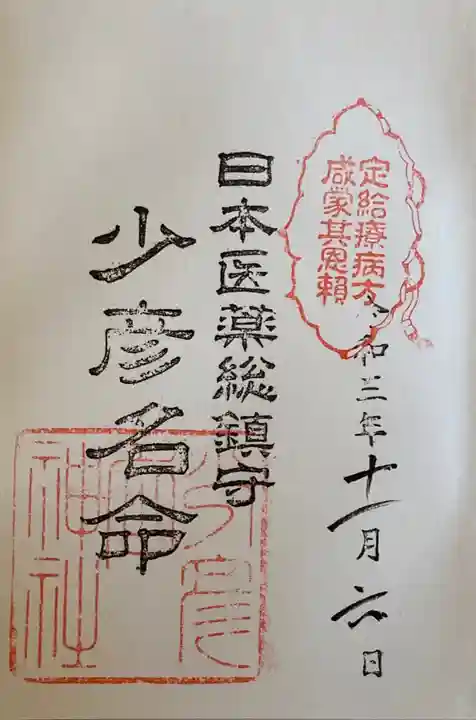 定給療病方
咸蒙其恩頼
令和三年十一月六日
日本医薬総鎮守
少彦名命
少彦名
神社